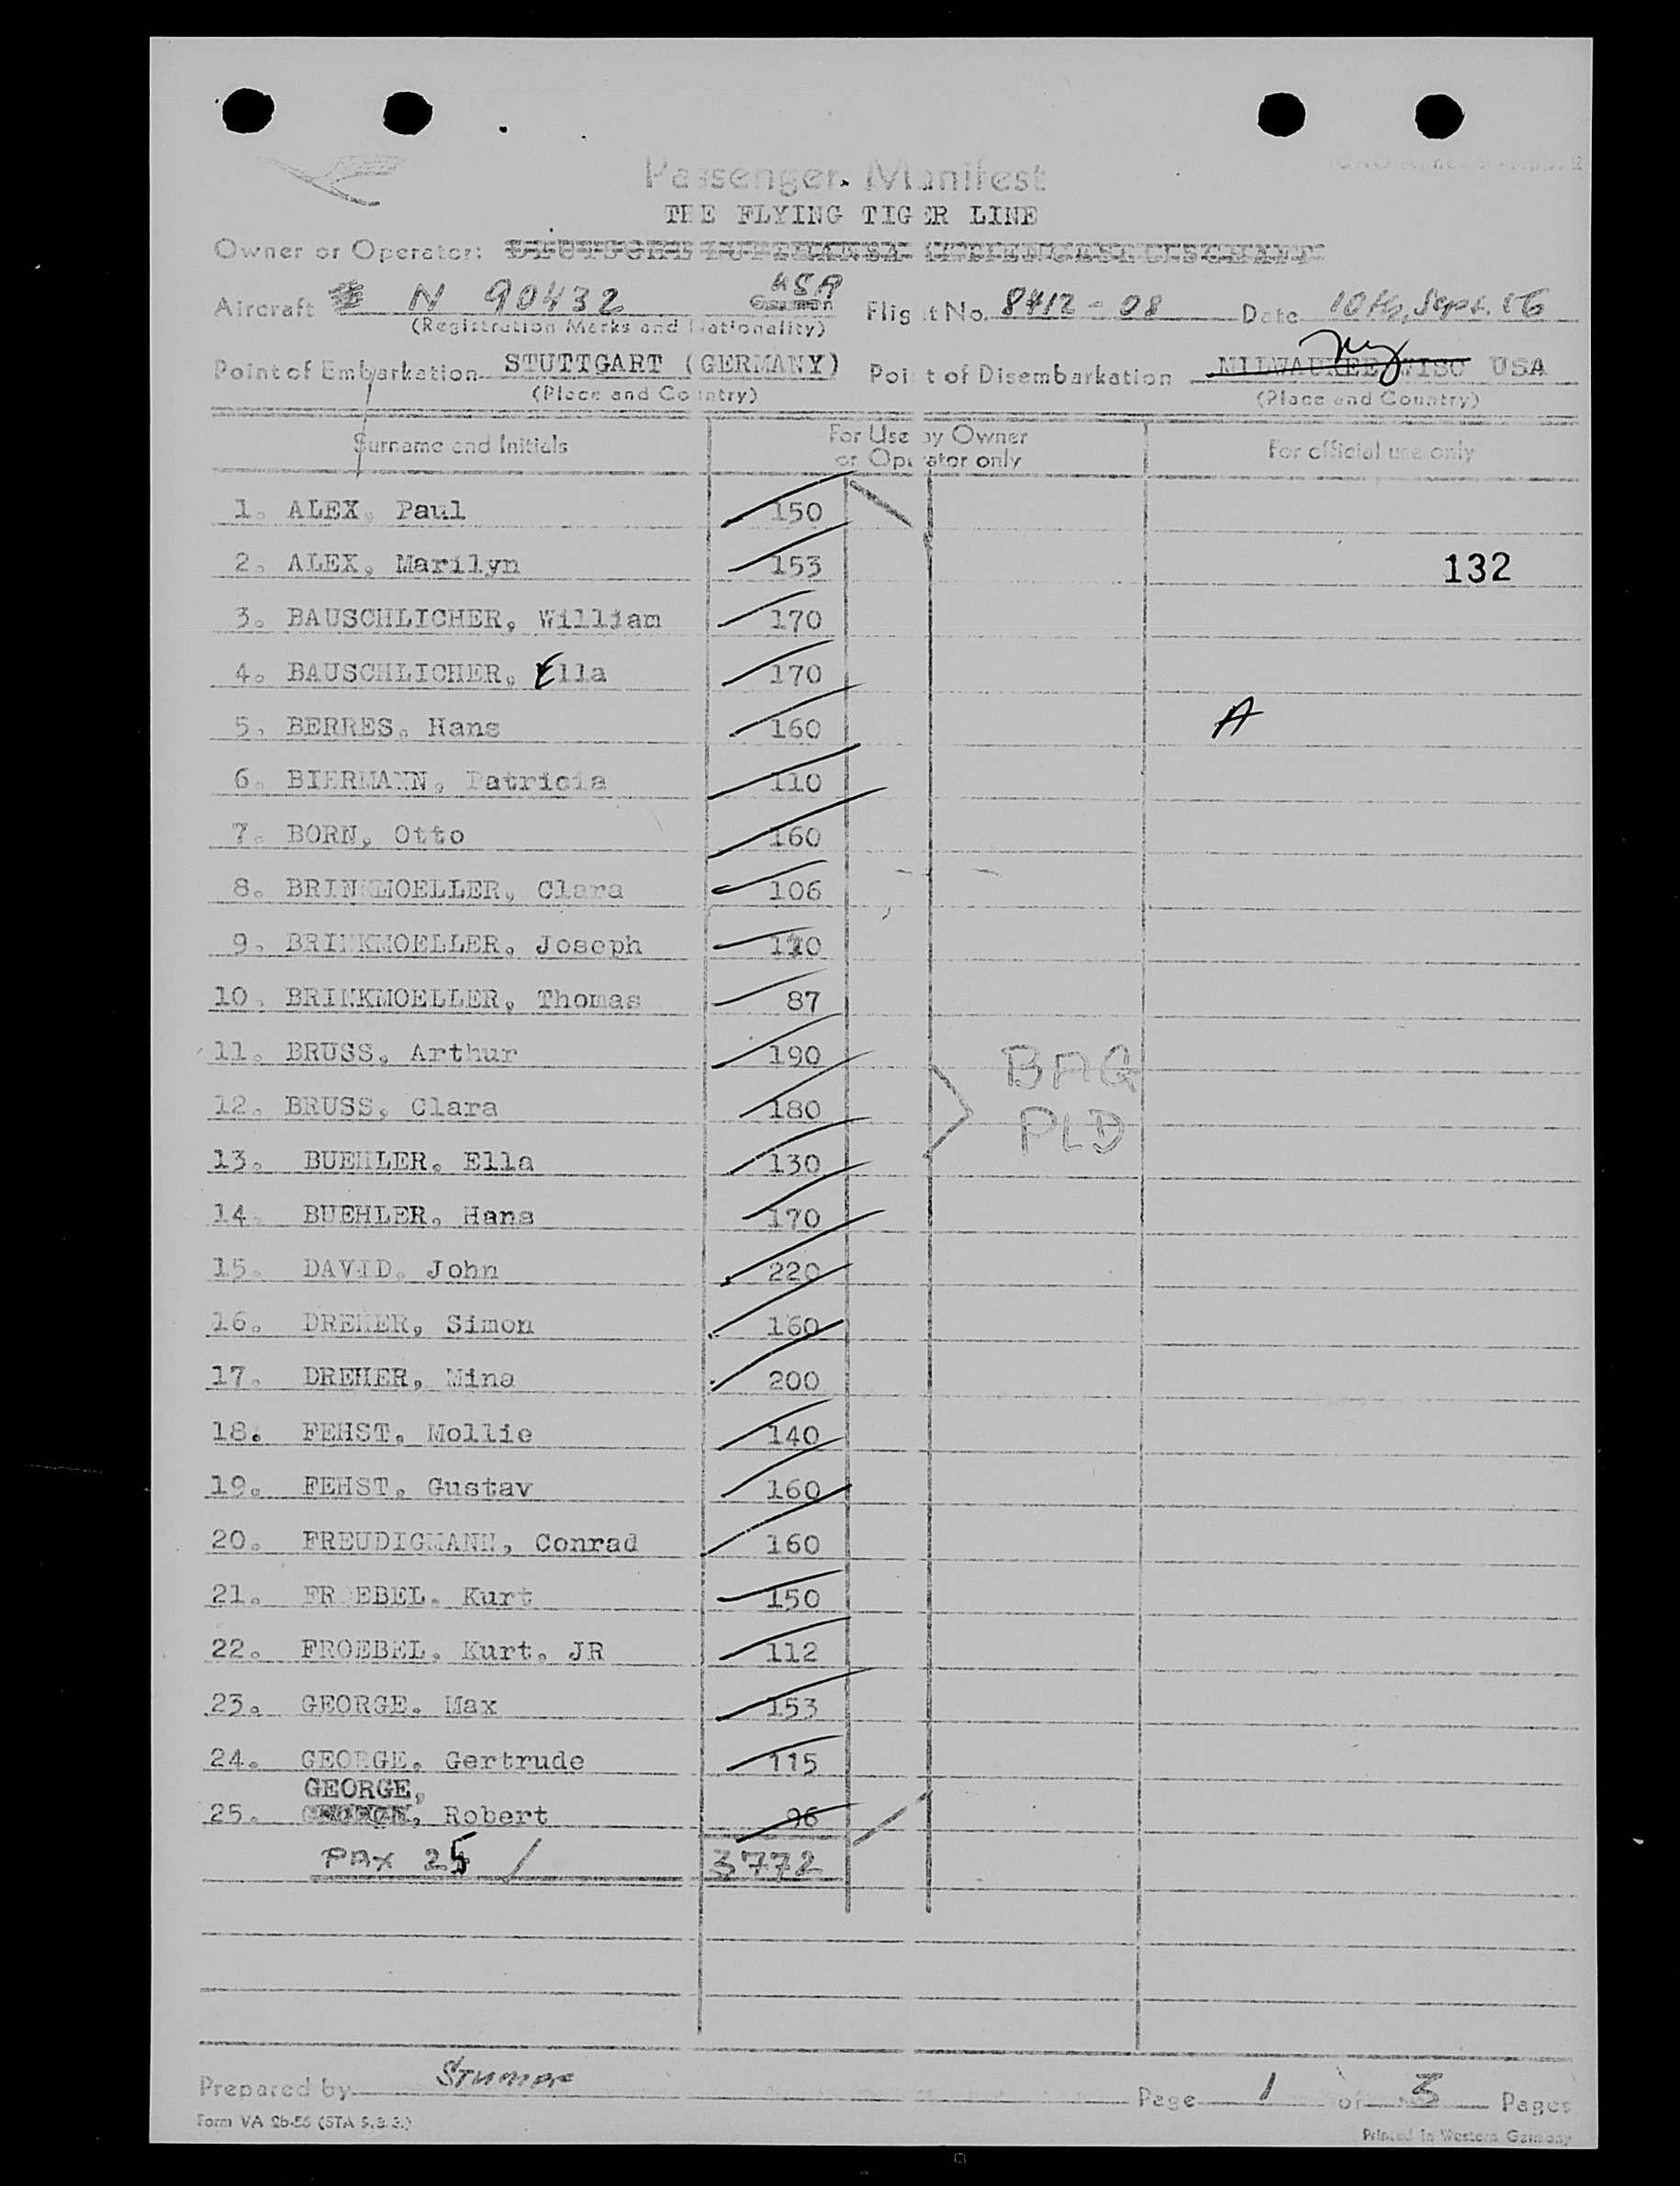 Passenger Manifest
THE FLYING TIGER LINE
Owner or Operator:
Aircraft N 90432 USA Flight No. 8412-08 Date 10th, Sept. 56
(Registration Marks and Nationality)
Point of Embarkation STUTTGART (GERMANY) Point of Disembarkation MILWAUKEE WISC NY USA
(Place and Country) (Place and Country)
Surname and Initials For Use by Owner or Operator only For official use only
1. ALEX, Paul 150
2. ALEX, Marilyn 153 132
3. BAUSCHLICHER, William 170
4. BAUSCHLICHER, Ella 170
5. BERRES, Hans 160 A
6. BIERMANN, Patricia 110
7. BORN, Otto 160
8. BRINKMOELLER, Clara 106
9. BRINKMOELLER, Joseph
10. BRINKMOELLER, Thomas 87
11. BRUSS, Arthur 190 BAG
12. BRUSS, Clara 180 PLD
13. BUEHLER, Ella 130
14. BUEHLER, Hans 170
15. DAVID, John 220
16. DREHER, Simon 160
17. DREHER, Mina 200
18. FEHST, Mollie 140
19. FEHST, Gustav 160
20. FREUDIGMANN, Conrad 160
21. FROEBEL, Kurt 150
22. FROEBEL, Kurt, JR 112
23. GEORGE, Max 153
24. GEORGE, Gertrude 115
GEORGE,
25. GEORGE, Robert 96
PAX 25 3772
Prepared by Page 1 of 3 Pages
Form VA 2b-56 (STA 5.3.3.)
Printed in Western Germany